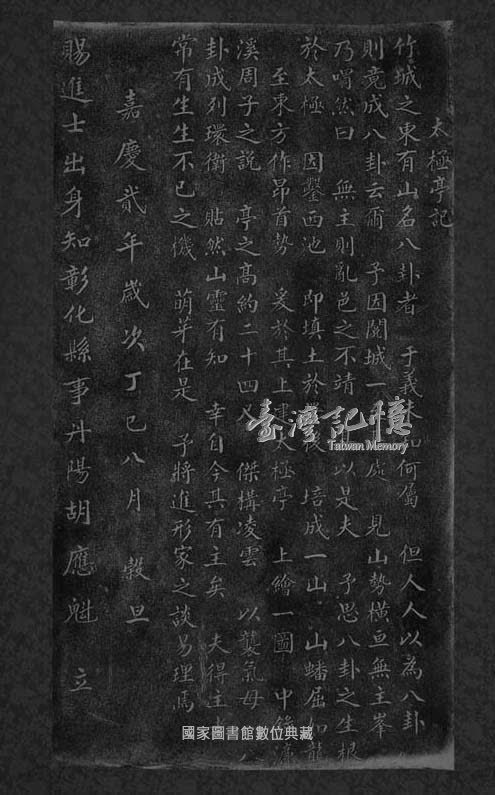 太極亭記
竹城之東有山名八卦者 于義未知何屬 但人人以為八卦
則竟成八卦云爾 予因閱城一處 見山勢橫亘無主峯
乃喟然曰 無主則亂邑之不靖 以是夫 予思八卦之生根
於太極 因鑿西池 即填土於 後 培成一山 山蟠屈如龍
至東方作昂首勢 爰於其上建太極亭 上繪一圖 中 濂
溪周子之說 亭之高約二十四 傑構凌雲 以襲氣母 八
卦成列環衛 貼然山靈有知 幸自今其有主矣 夫得主
常有生生不已之機 萌芽在是 予將進形家之談易理焉
嘉慶貳年歲次丁巳八月 穀旦
賜進士出身知彰化縣事丹陽胡應魁 立
臺灣記憶
Taiwan Memory
國家圖書館數位典藏